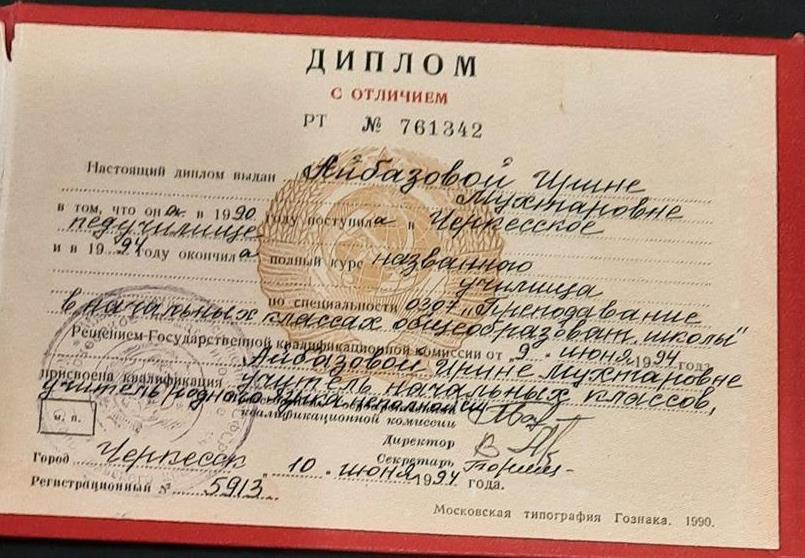 ДИПЛОМ
С ОТЛИЧИЕМ
РТ № 761342
Настоящий диплом выдан Айбазовой Ирине
Мухтаровне
в том, что она в 1990 году поступила в Черкесское
педучилище
и в 1994 году окончила полный курс названного
училища
по специальности 0307 „Преподавание
в начальных классах общеобразоват. школы"
Решением Государственной квалификационной комиссии от „9" июня 1994 года
Айбазовой Ирине Мухтаровне
присвоена квалификация учитель начальных классов,
учитель родного языка неполной
квалификационной комиссии
Директор
м. п.
Секретарь
Город Черкесск „10" июня 1994 года.
Регистрационный № 5913
Московская типография Гознака. 1990.